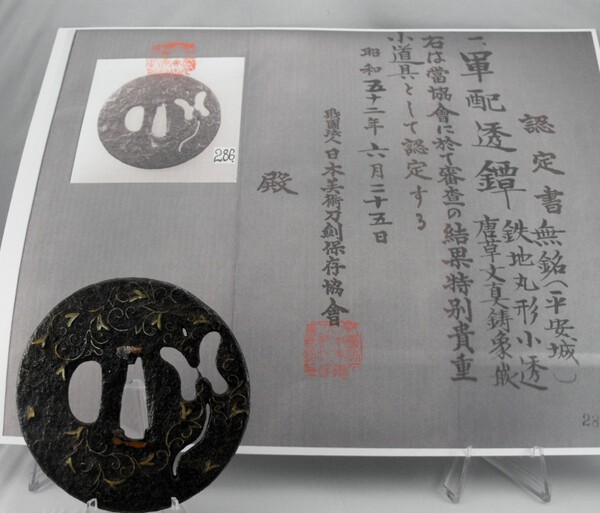 認定書
一、軍配透鐔
無銘(平安城)
鉄地丸形小透
唐草文真鍮象嵌
右は當協會に於て審査の結果特別貴重
小道具として認定する
昭和五十二年六月二十五日
財團法人日本美術刀劍保存協會
殿
286
28